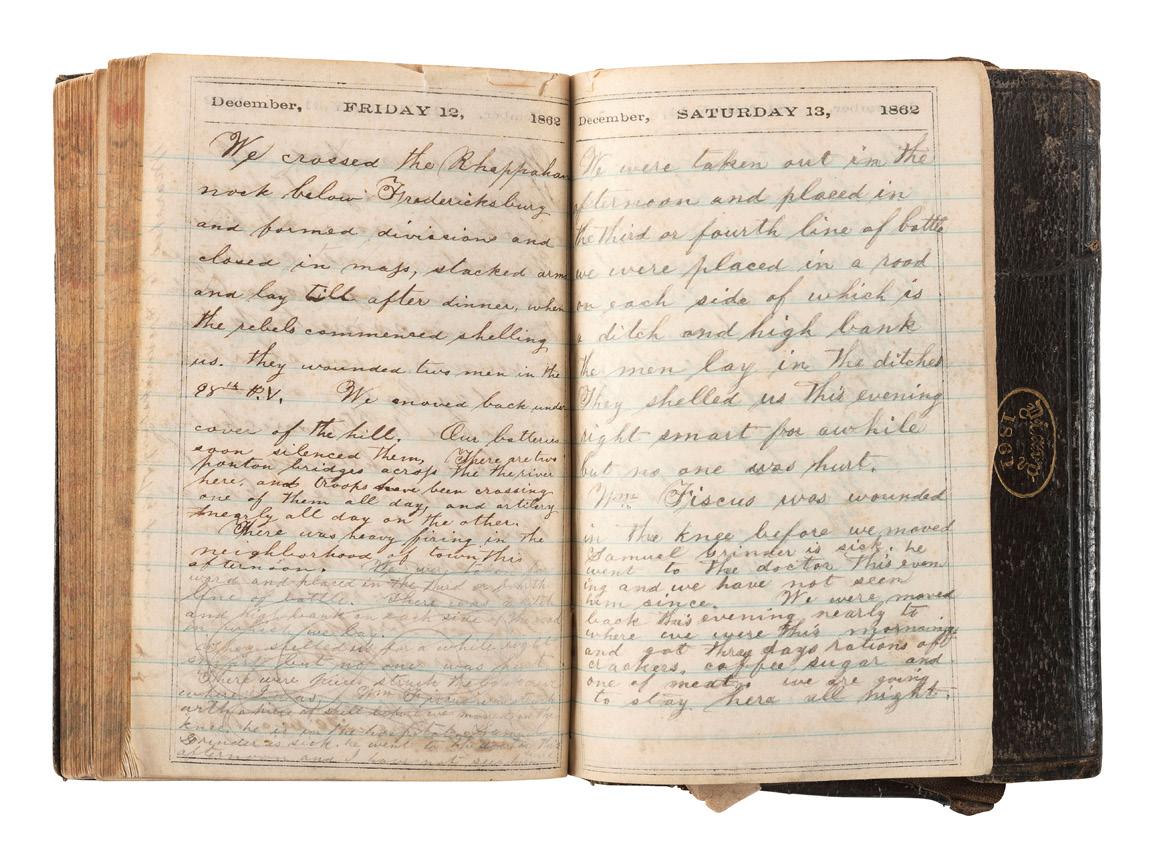 December, FRIDAY 12, 1862
We crossed the Rhappahan
nock below Fredericksburg
and formed division and
closed in mass, stacked arms
and lay till after dinner, when
the rebels commenced shelling
us. they wounded two men in the
98th P.V. We moved back under
cover of the hill. Our batteries
soon silenced them, There are two
ponton bridges across the the river
here, and troops have been crossing
one of them all day, and artilery
nearly all day on the other.
There was heavy firing in the
neighborhood of town this
afternoon. We were
ward and placed in the third or fourth
line of battle. There was a ditch
and high bank on each side of the road
in which we lay.
They shelled us for a while right
smart but no one was hurt.
There were struck the
where I was. Wm Fiscus was
of shell before we moved in the
knee, he is in the hospital.
Grinder is sick. he went to the this
afternoon and I have not seen
December, SATURDAY 13, 1862
We were taken out in the
afternoon and placed in
the third or fourth line of battle
we were placed in a road
on each side of which is
a ditch and high bank
the men lay in the ditches
They shelled us this evening
right smart for awhile
but no one was hurt.
Wm Fiscus was wounded
in the knee before we moved
Samuel Grinder is sick. he
went to the doctor this even
ing and we have not seen
him since. We were moved
back this evening nearly to
where we were this morning
and got three days rations off
crackers, coffee, sugar and
one of meat. we are going
to stay here all night.
Diary
1861